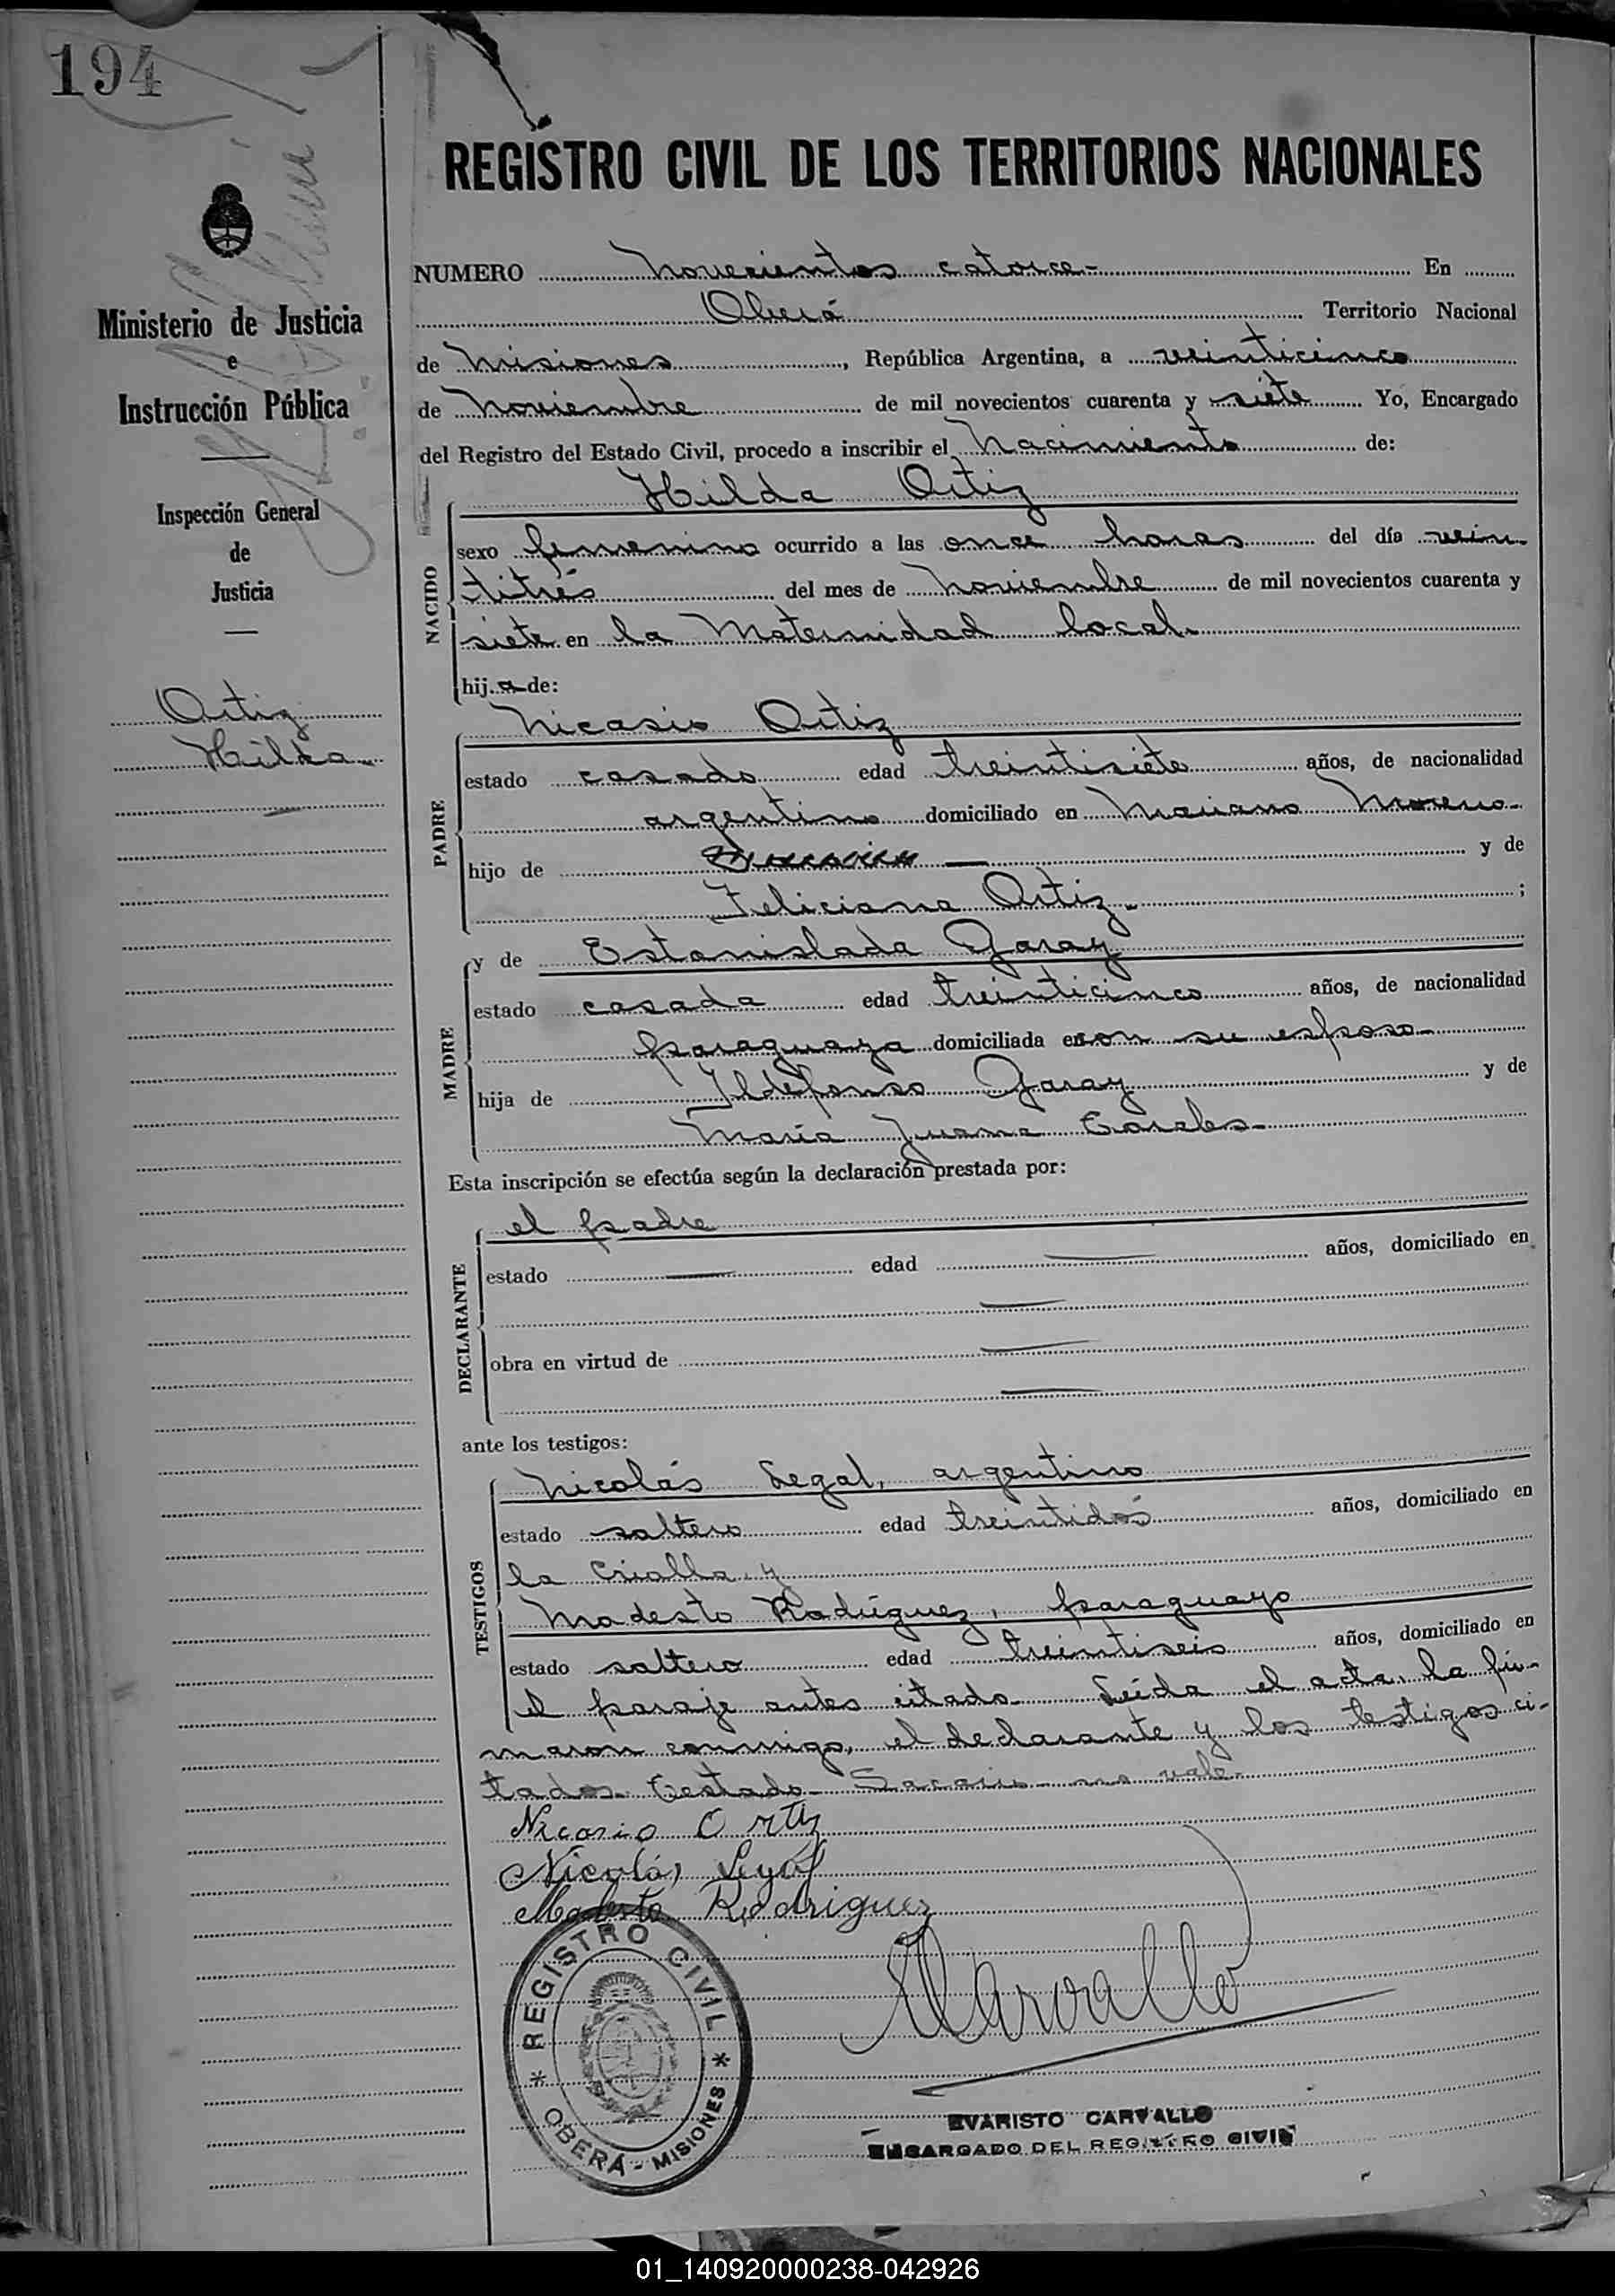 194
REGISTRO CIVIL DE LOS TERRITORIOS NACIONALES
Ministerio de Justicia
e
Instrucción Pública
Inspección General
de
Justicia
Ortiz
Hilda
NUMERO novecientos catorce- En
Oberá Territorio Nacional
de Misiones, República Argentina, a veinticinco
de noviembre de mil novecientos cuarenta y siete Yo, Encargado
del Registro del Estado Civil, procedo a inscribir el Nacimiento de:
Hilda Ortiz
NACIDO
sexo femenino ocurrido a las once horas del día vein-
titrés del mes de noviembre de mil novecientos cuarenta y
siete en la Maternidad local.
hij a de:
Nicasio Ortiz
PADRE
estado casado edad treintisiete años, de nacionalidad
argentino domiciliado en Mariano Moreno-
hijo de — y de
Feliciana Ortiz- ;
y de Estanislada Garay
MADRE
estado casada edad treinticinco años, de nacionalidad
paraguaya domiciliada en con su esposo-
hija de Ildefonso Garay y de
María Juana
Esta inscripción se efectúa según la declaración prestada por:
el padre
DECLARANTE
estado — edad — años, domiciliado en
—
obra en virtud de —
—
ante los testigos:
Nicolás Legal, argentino
TESTIGOS
estado soltero edad treintidós años, domiciliado en
la Criolla y
Modesto Rodríguez, paraguayo
estado soltero edad treintiseis años, domiciliado en
el paraje antes citado- Leída el acta, la fir-
maron conmigo, el declarante y los testigos ci-
tados- Testado- no vale-
Nicasio Ortiz
Nicolás Legal
Modesto Rodriguez
Carvallo
REGISTRO CIVIL
* OBERÁ - MISIONES *
EVARISTO CARVALLO
ENCARGADO DEL REGISTRO CIVIL
01_140920000238-042926